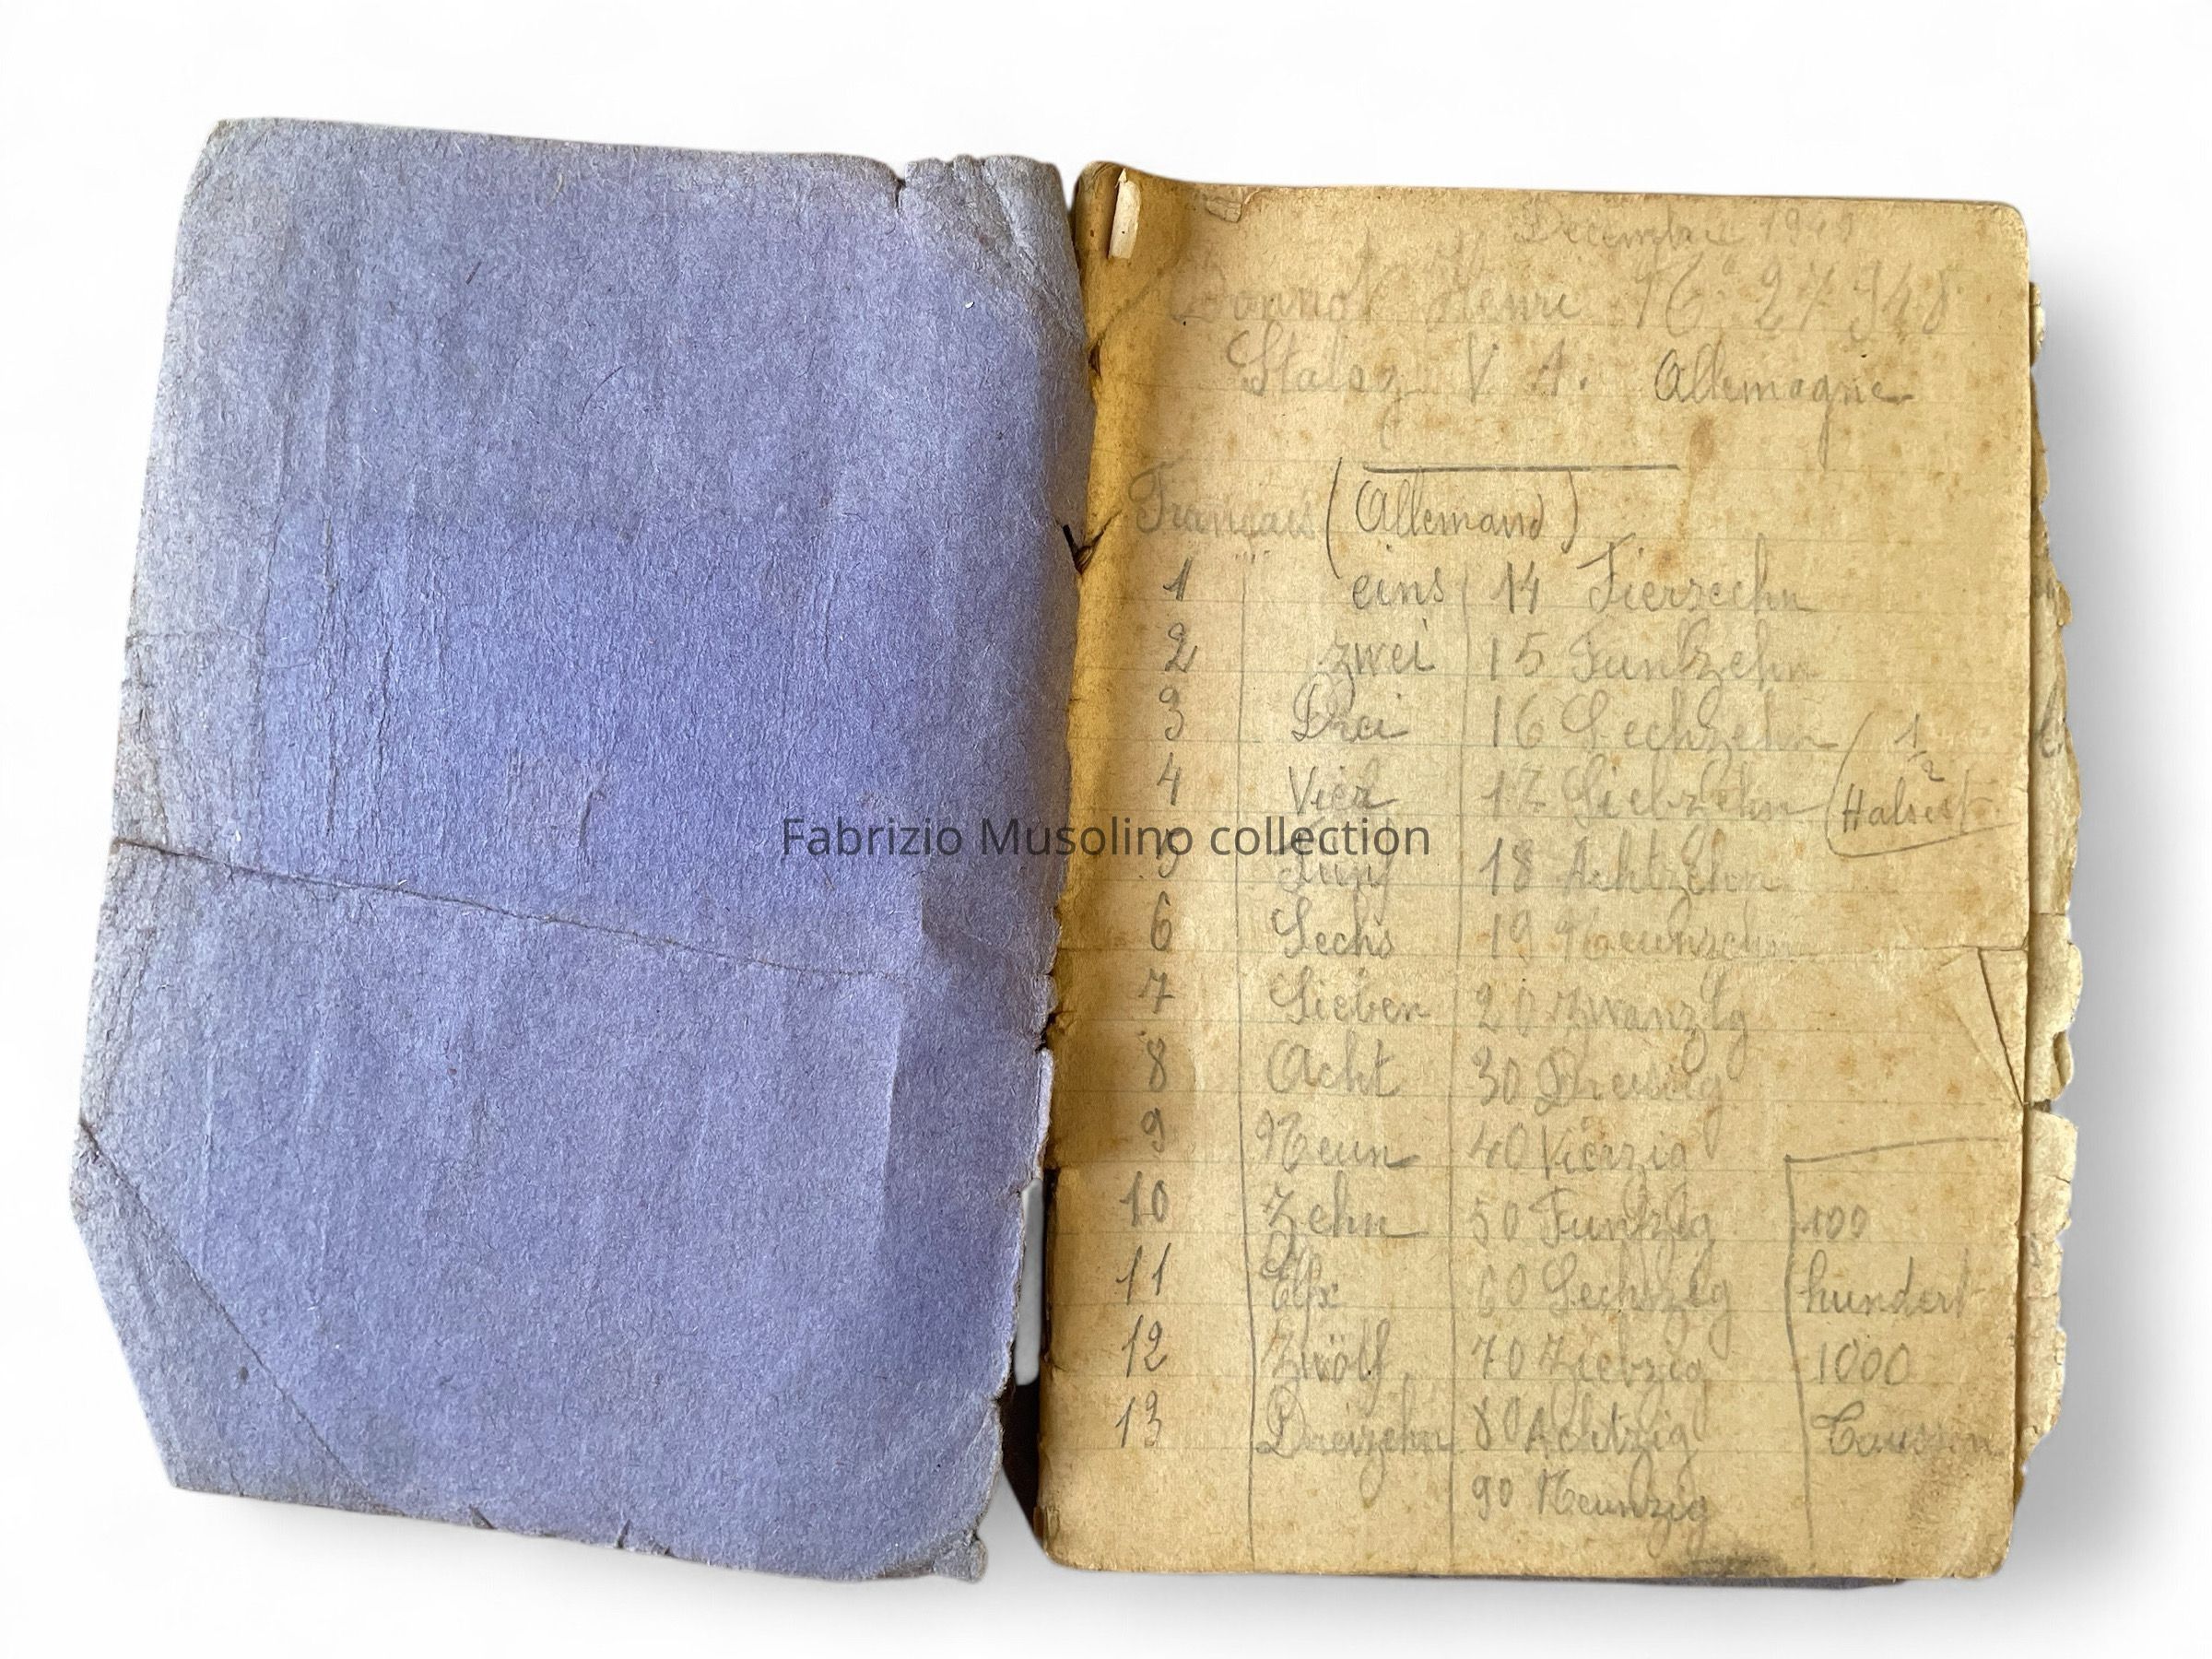 Decembre 1940
Henri N° 27948
Stalag V A. Allemagne
Français (Allemand)
1 eins 14 Fierzehn
2 zwei 15 Funfzehn
3 Drei 16 Sechzehn (1/2
4 Vier 17 Siebzehn Halsest
Fabrizio Musolino collection
5 Funf 18 Achtzehn
6 Sechs 19 Neunzehn
7 Sieben 20 Zwanzig
8 Acht 30 Dreisig
9 Neun 40 Vierzig
10 Zehn 50 Funfzig 100
11 Elf 60 Sechszig hundert
12 Zwölf 70 Ziebzig 1000
13 Dreizehn 80 Achtzig
90 Neunzig